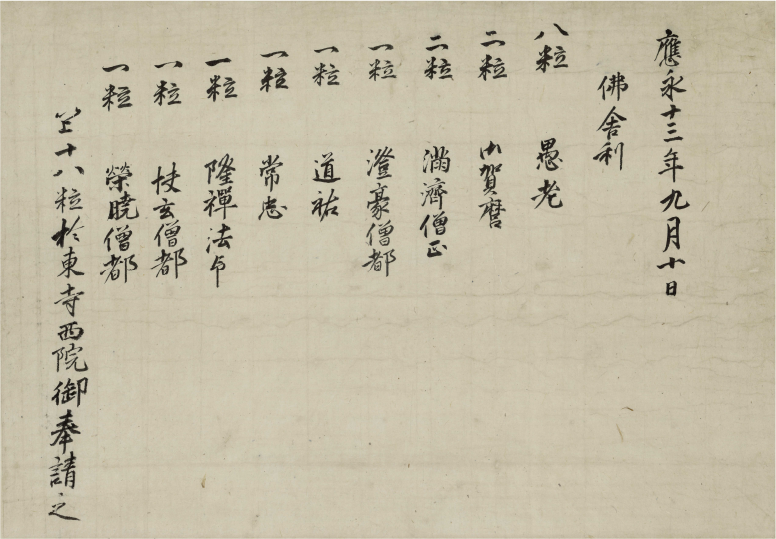 應永十三年九月十日
佛舎利
八粒 愚老
二粒 御賀麿
二粒 満濟僧正
一粒 澄豪僧都
一粒 道祐
一粒 常忠
一粒 隆禪法印
一粒 杖玄僧都
一粒 榮曉僧都
以上十八粒於東寺西院御奉請之